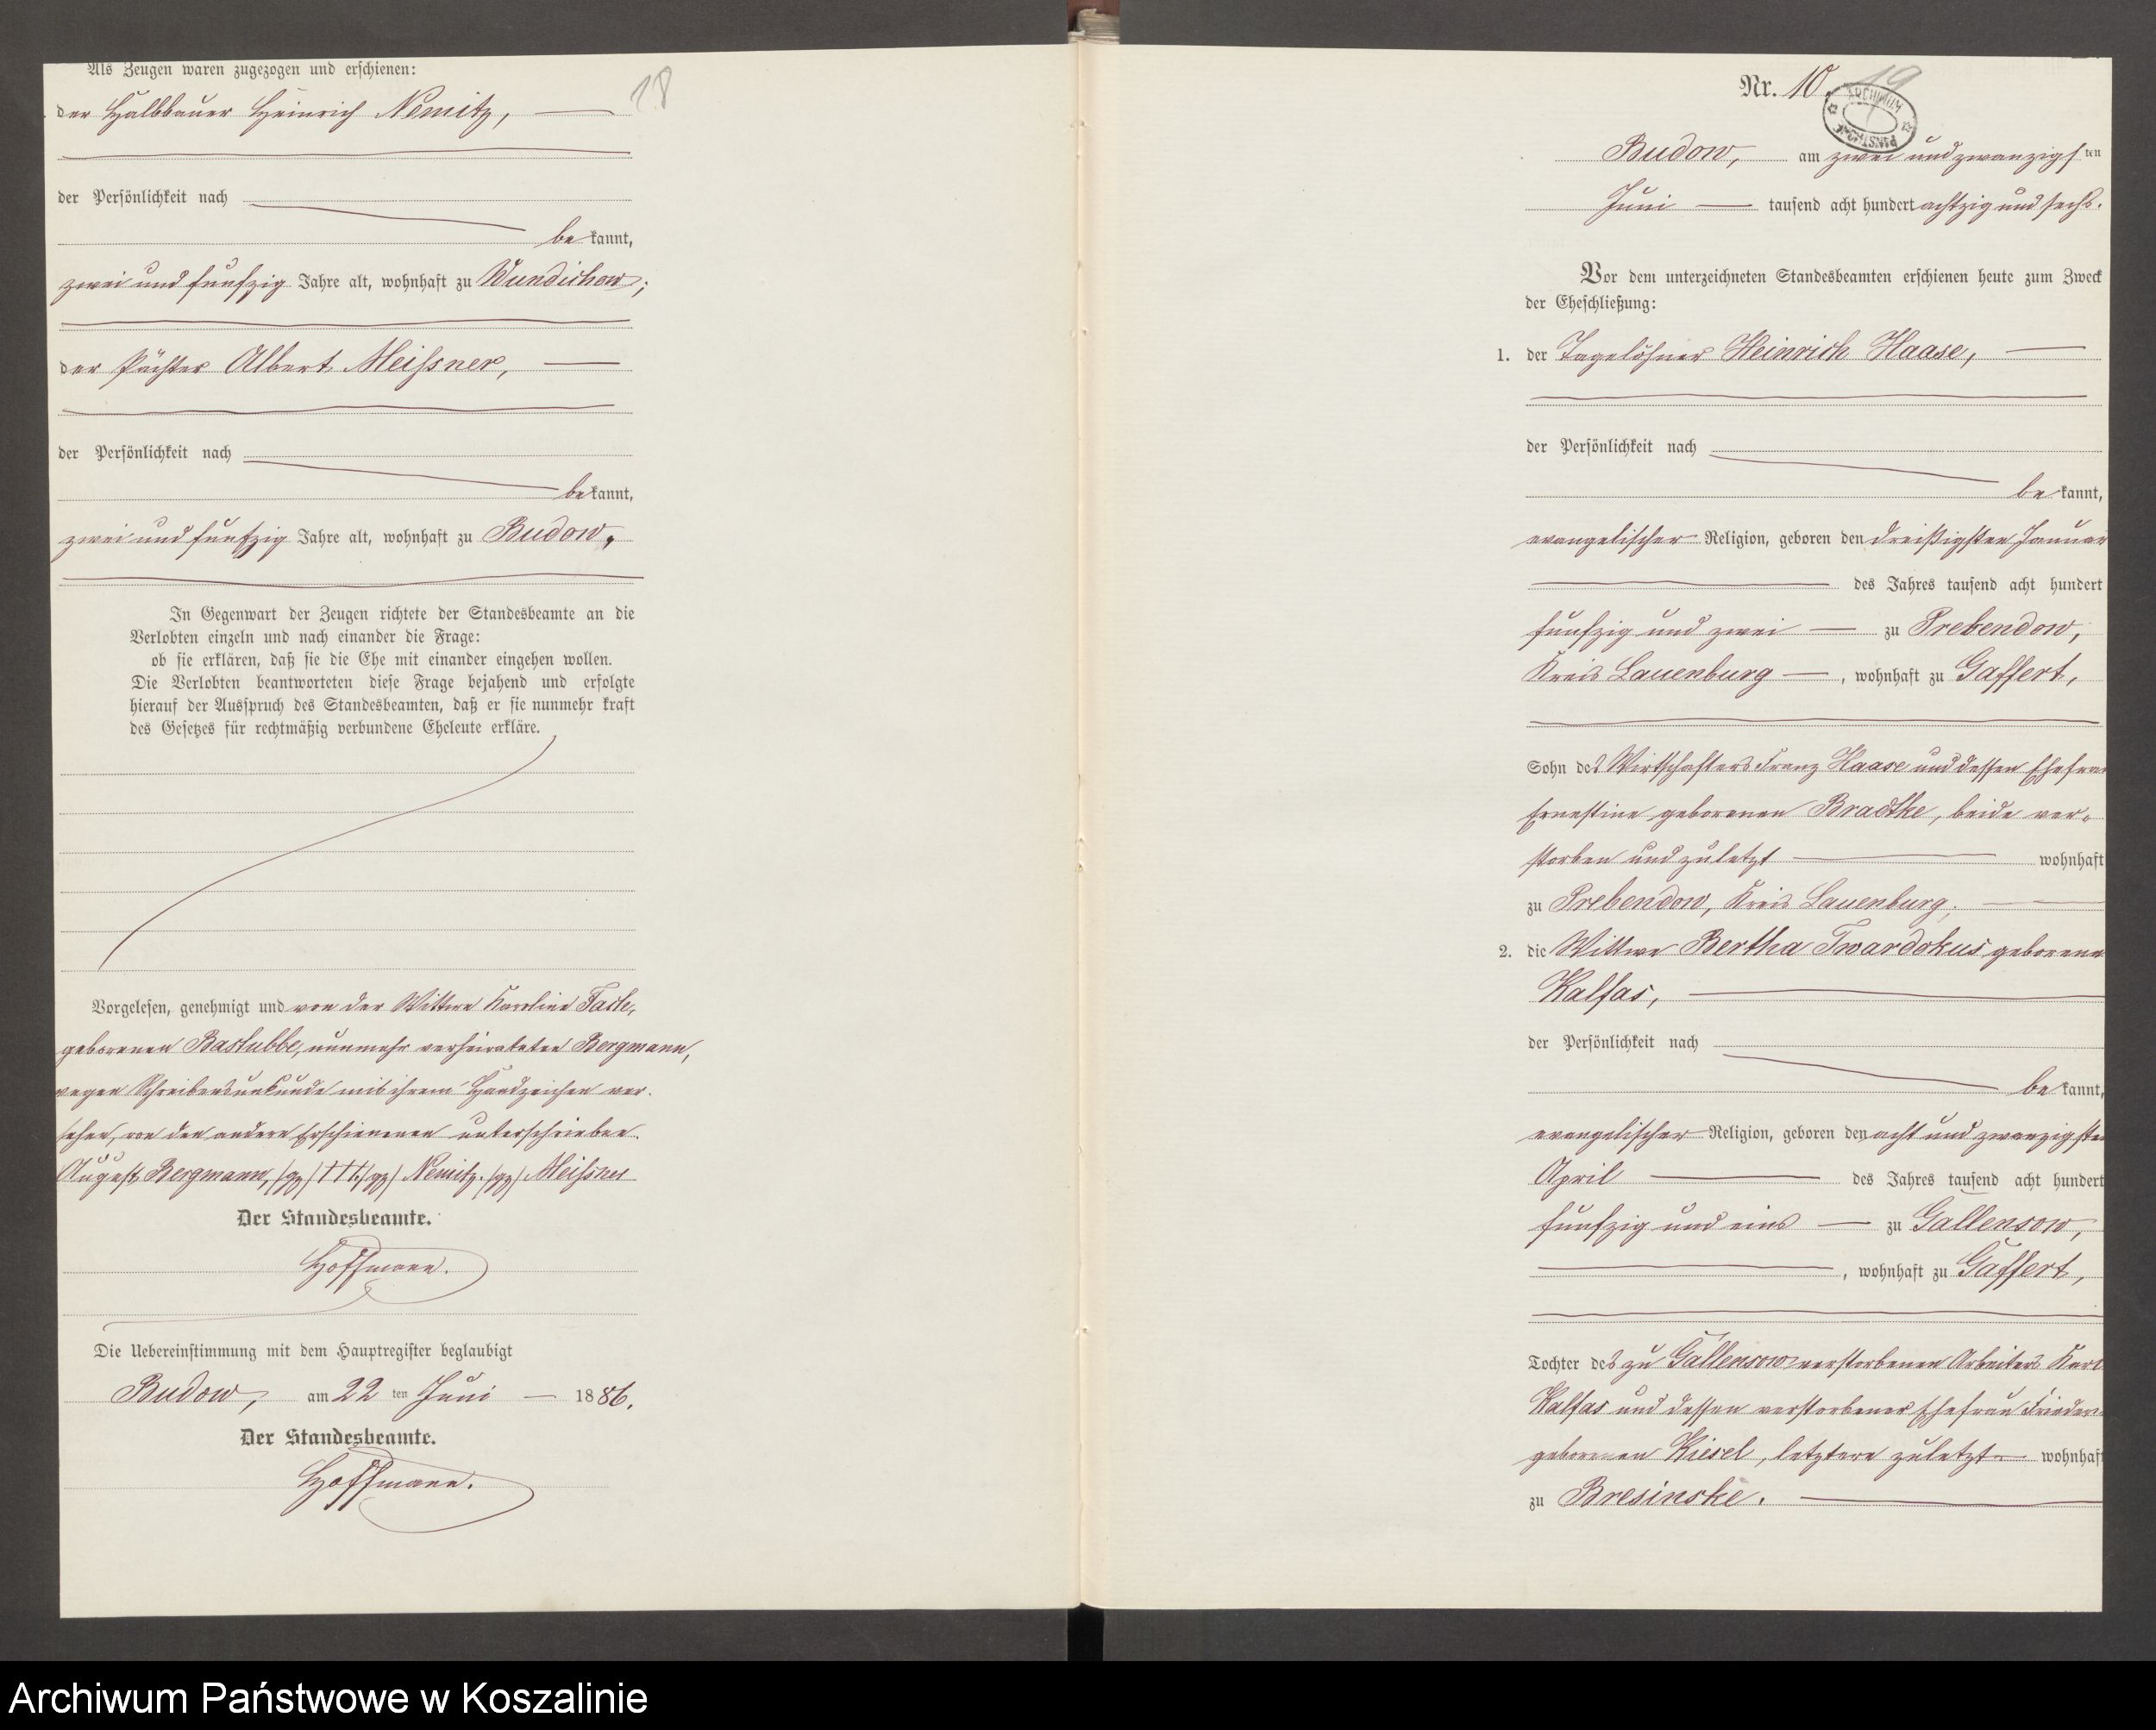 Als Zeugen waren zugezogen und erschienen:
der Halbbauer Heinrich Nemitz,
18
der Persönlichkeit nach
be kannt,
zwei und funfzig Jahre alt, wohnhaft zu Wundichow;
der Pächter Albert Meißner,
der Persönlichkeit nach
be kannt,
zwei und funfzig Jahre alt, wohnhaft zu Budow.
In Gegenwart der Zeugen richtete der Standesbeamte an die
Verlobten einzeln und nach einander die Frage:
ob sie erklären, daß sie die Ehe mit einander eingehen wollen.
Die Verlobten beantworteten diese Frage bejahend und erfolgte
hierauf der Ausspruch des Standesbeamten, daß er sie nunmehr kraft
des Gesetzes für rechtmäßig verbundene Eheleute erkläre.
Vorgelesen, genehmigt und von der Wittwe Karoline
geborenen Bastubbe, nunmehr verheirateten Bergmann,
wegen Schreibensunkunde mit ihrem Handzeichen ver-
sehen, von den andern Erschienenen unterschrieben.
August Bergmann, (gz) ††† (gz) Nemitz. (gz) Meißner
Der Standesbeamte.
Hoffmann.
Die Uebereinstimmung mit dem Hauptregister beglaubigt
Budow, am 22 ten Juni 1886.
Der Standesbeamte.
Hoffmann.
Nr. 10.
19
ARCHIWUM
Budow, am zwei und zwanzigsten
Juni tausend acht hundert achtzig und sechs.
Vor dem unterzeichneten Standesbeamten erschienen heute zum Zweck
der Eheschließung:
1. der Tagelöhner Heinrich Haase,
der Persönlichkeit nach
be kannt,
evangelischer Religion, geboren den dreißigsten Januar
des Jahres tausend acht hundert
funfzig und zwei zu Prebendow,
Kreis Lauenburg, wohnhaft zu Gaffert,
Sohn des Wirtschafters Franz Haase und dessen Ehefrau
Ernestine geborenen Bradtke, beide ver-
storben und zuletzt wohnhaft
zu Prebendow, Kreis Lauenburg;
2. die Wittwe Bertha Twardokus geborene
Kalfas,
der Persönlichkeit nach
be kannt,
evangelischer Religion, geboren den acht und zwanzigsten
April des Jahres tausend acht hundert
funfzig und eins zu Gallensow,
, wohnhaft zu Gaffert,
Tochter des zu Gallensow verstorbenen Arbeiters Karl
Kalfas und dessen verstorbener Ehefrau
geborenen Kiesel, letztere zuletzt wohnhaft
zu Bresinske.
Archiwum Państwowe w Koszalinie